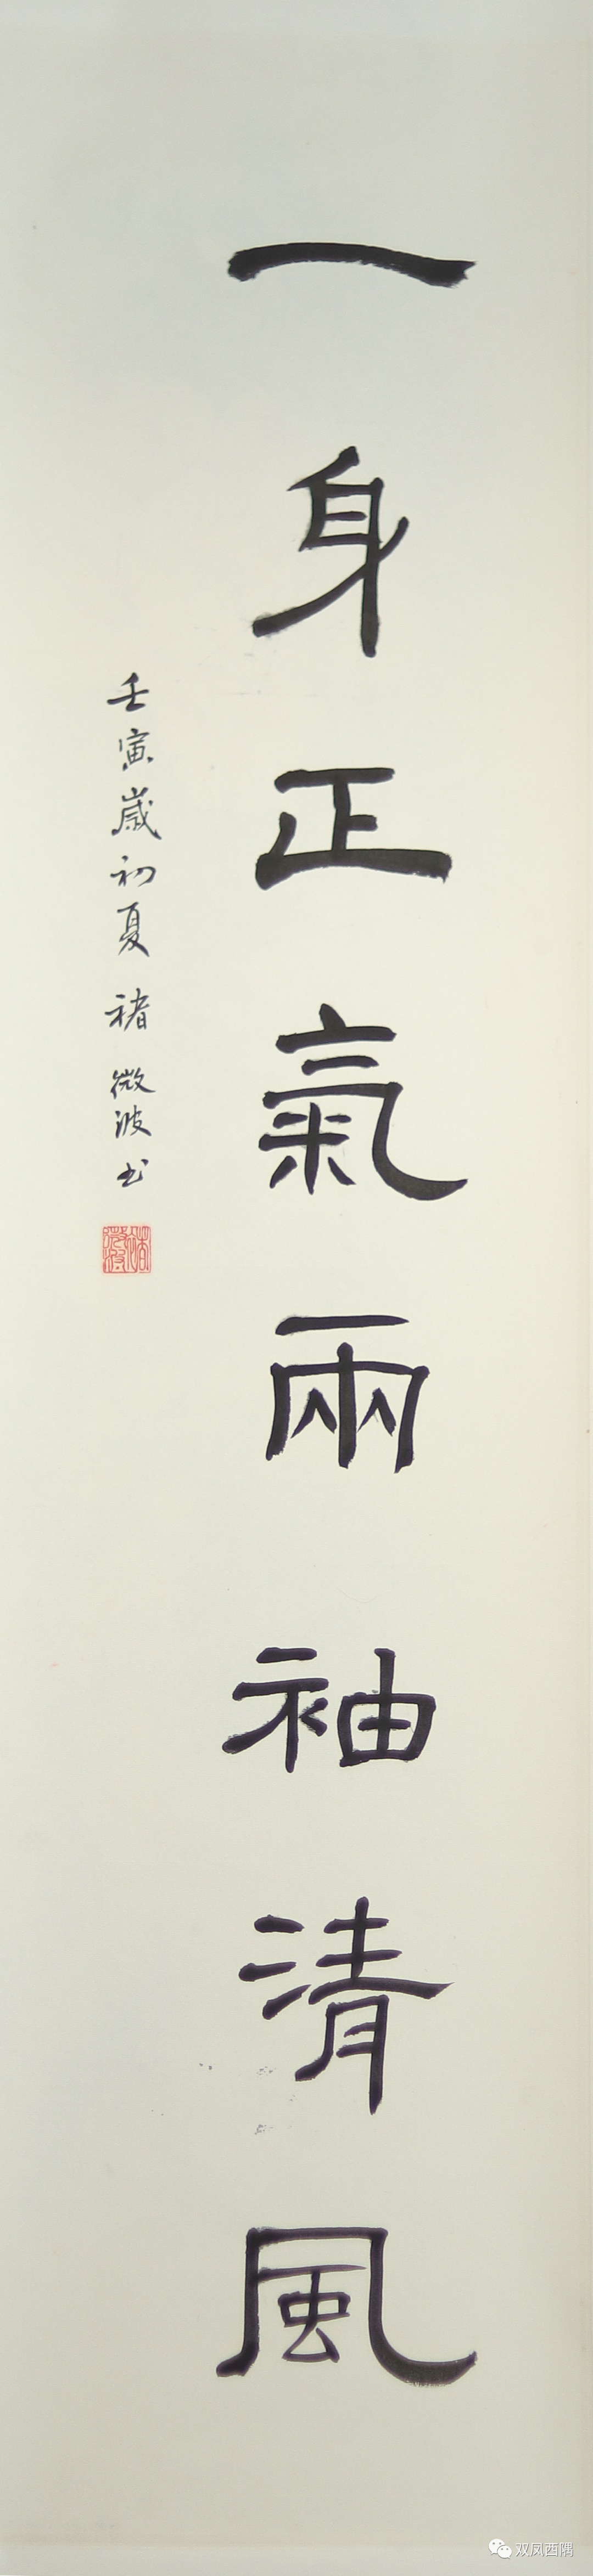 一身正氣兩袖清風
壬寅歲初夏 褚微波书
双凤西隅